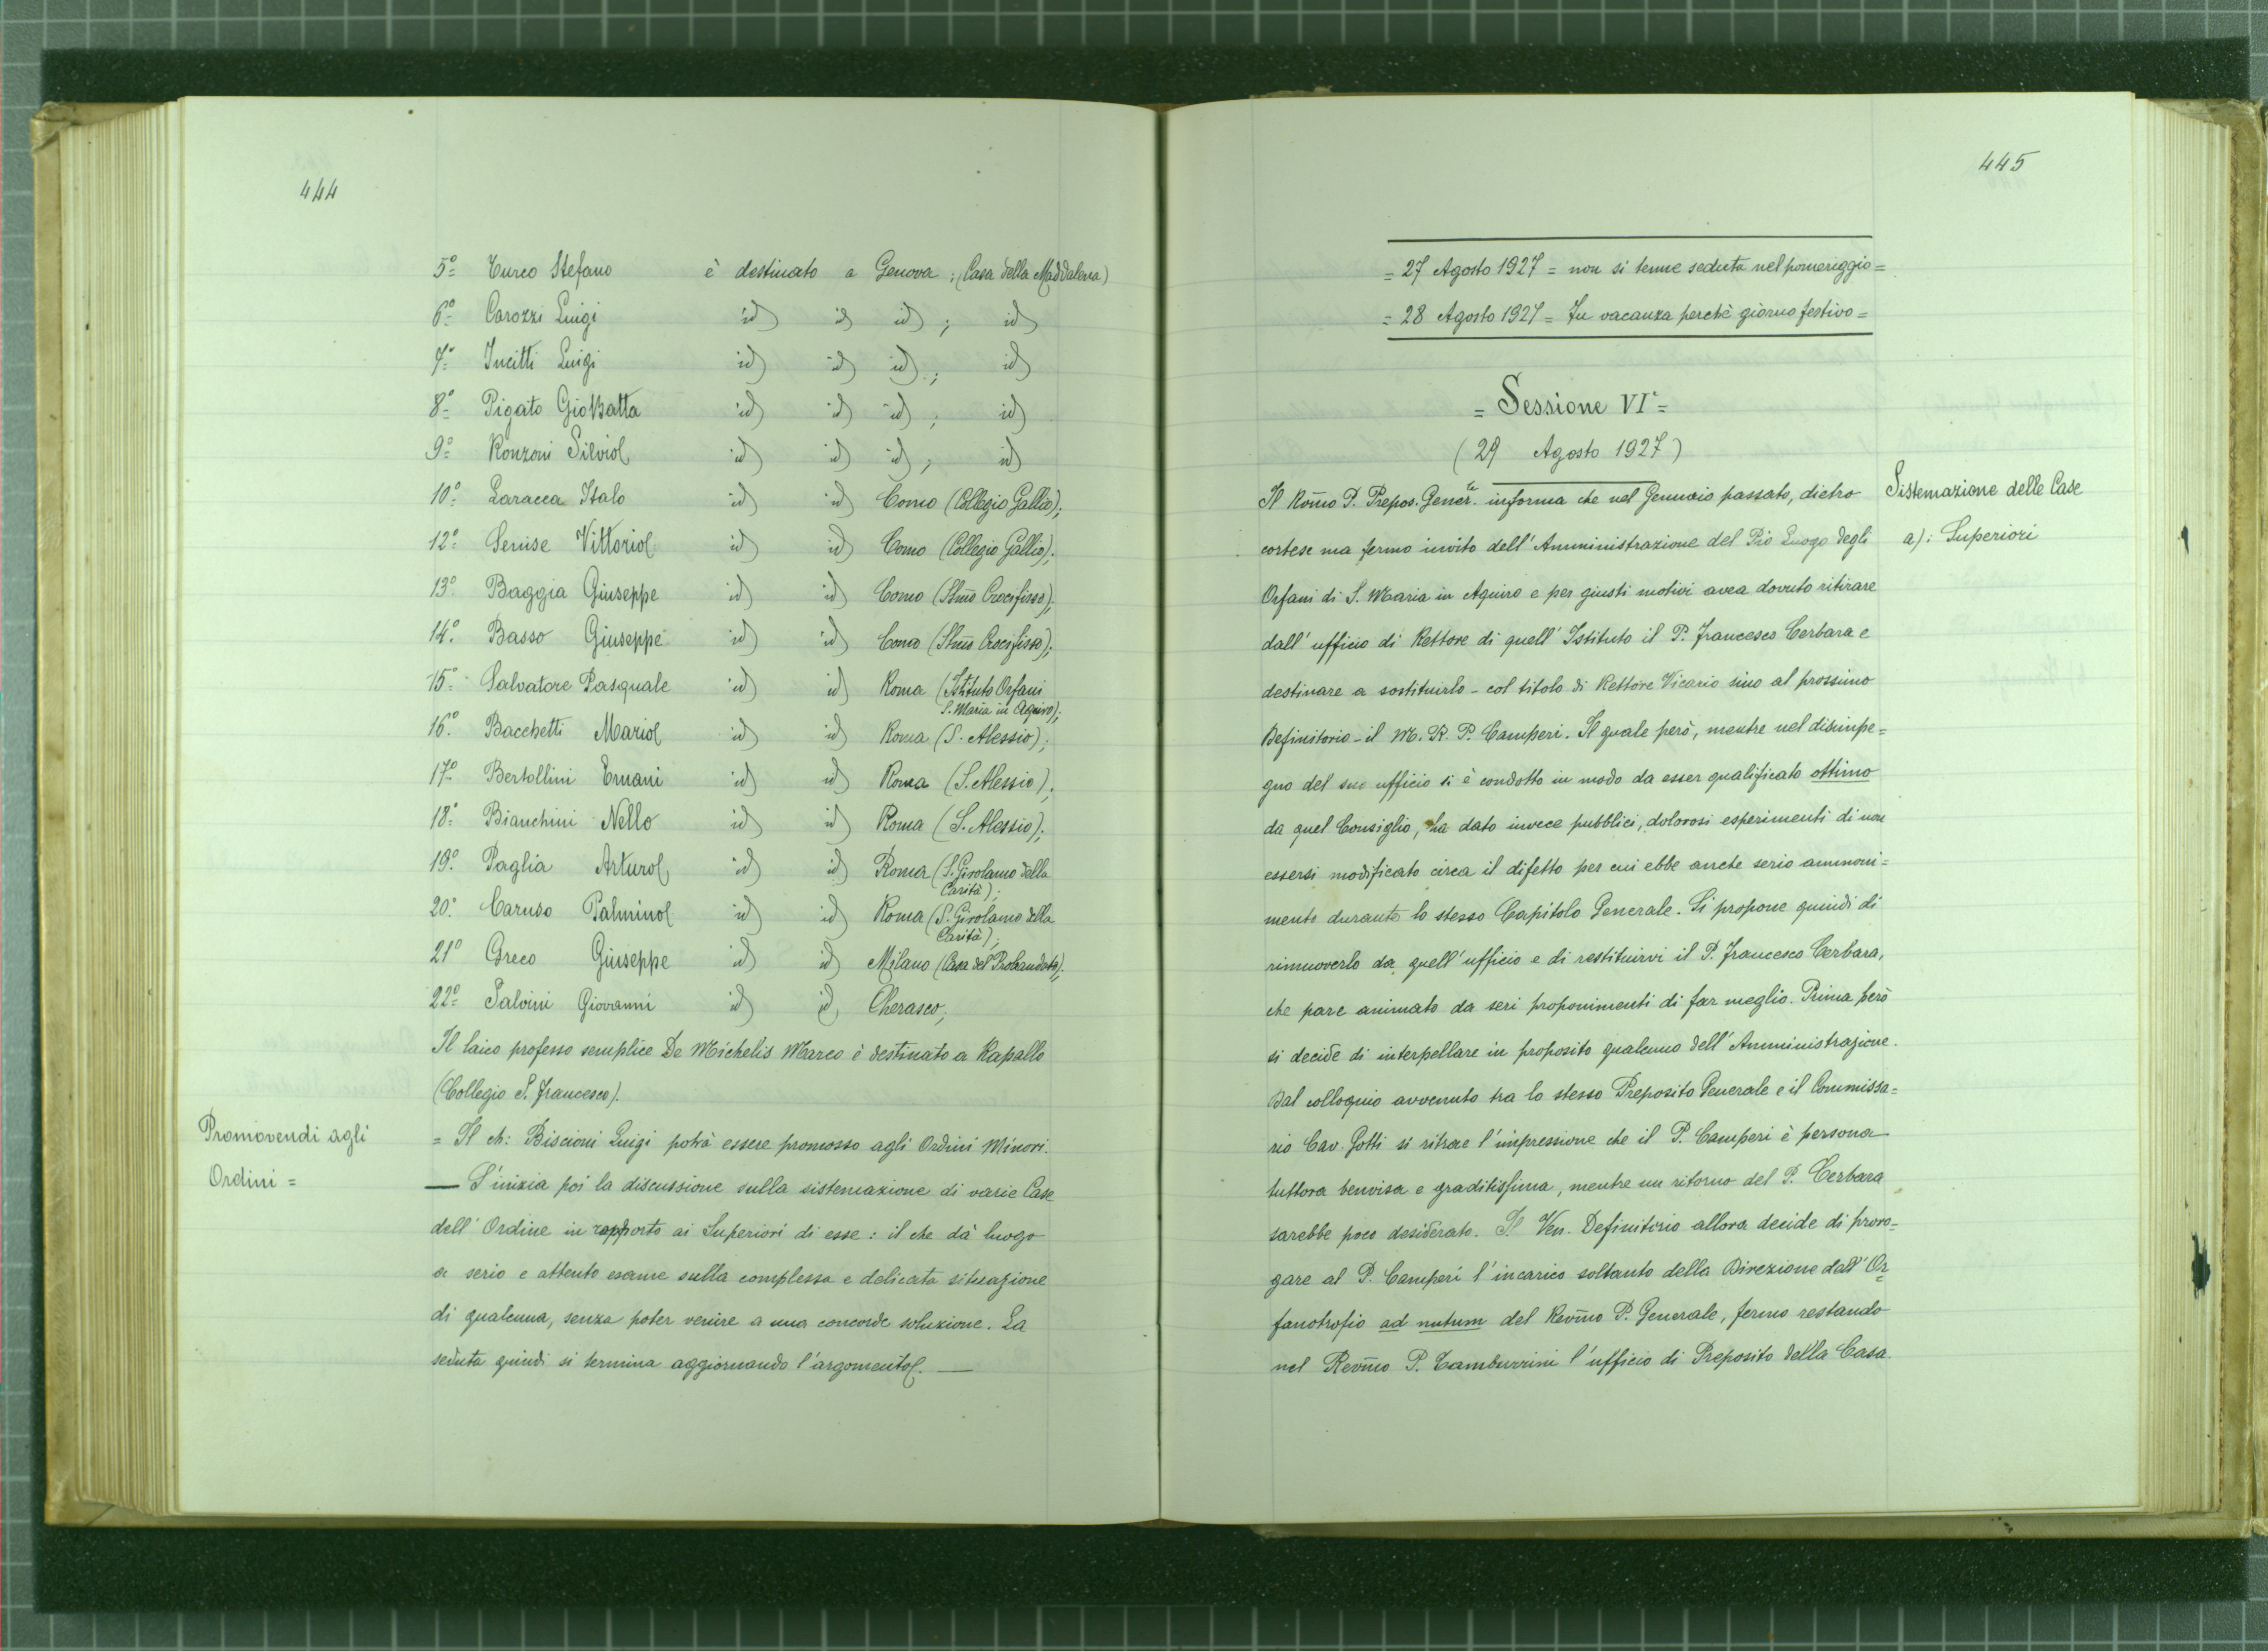 444
5º Turco Stefano è destinato a Genova; (Casa della Maddalena)
6º Carozzi Luigi id) id id); id)
7º Incitti Luigi id) id) id).; id)
8º Pigato GioBatta id) id) id); id)
9º Ronzoni Silvio id) id) id); id)
10º Laracca Italo id) id) Como (Collegio Gallio);
12º Senise Vittorio id) id) Como (Collegio Gallio);
13º Baggia Giuseppe id) id) Como (SSmo Crocifisso);
14º Basso Giuseppe id) id) Como (SSmo Crocifisso);
15º Salvatore Pasquale id) id) Roma (Istituto Orfani
S. Maria in Aquiro);
16º Bacchetti Mario id) id) Roma (S. Alessio);
17º Bertollini Ernani id) id) Roma (S. Alessio);
18º Bianchini Nello id) id) Roma (S. Alessio);
19º Paglia Arturo id) id) Roma (S. Girolamo della
Carità);
20º Caruso Palmino id) id) Roma (S. Girolamo della
Carità);
21º Greco Giuseppe id) id) Milano (Casa del Probandato);
22º Salvini Giovanni id) id, Cherasco;
Il laico professo semplice De Michelis Marco è destinato a Rapallo
(Collegio S. Francesco).
Promovendi agli
Ordini =
= Il ch: Biscioni Luigi potrà essere promosso agli Ordini Minori.
— S'inizia poi la discussione sulla sistemazione di varie Case
dell' Ordine in rapporto ai Superiori di esse: il che dà luogo
a serio e attento esame sulla complessa e delicata situazione
di qualcuna, senza poter venire a una concorde soluzione. La
seduta quindi si termina aggiornando l'argomento. —
445
= 27 Agosto 1927 = non si tenne seduta nel pomeriggio =
= 28 Agosto 1927 = Fu vacanza perchè giorno festivo =
= Sessione VIª =
(29 Agosto 1927)
Sistemazione delle Case
a): Superiori
Il Rōmo P. Prepos. Gener.le informa che nel Gennaio passato, dietro
cortese ma fermo invito dell' Amministrazione del Pio Luogo degli
Orfani di S. Maria in Aquiro e per giusti motivi avea dovuto ritirare
dall' ufficio di Rettore di quell' Istituto il P. Francesco Cerbara e
destinare a sostituirlo - col titolo di Rettore Vicario sino al prossimo
Definitorio - il M. R. P. Camperi. Il quale però, mentre nel disimpe=
gno del suo ufficio si è condotto in modo da esser qualificato ottimo
da quel Consiglio, ha dato invece pubblici, dolorosi esperimenti di non
essersi modificato circa il difetto per cui ebbe anche serio ammoni=
mento durante lo stesso Capitolo Generale. Si propone quindi di
rimuoverlo da quell' ufficio e di restituirvi il P. Francesco Cerbara,
che pare animato da seri proponimenti di far meglio. Prima però
si decide di interpellare in proposito qualcuno dell' Amministrazione.
Dal colloquio avvenuto tra lo stesso Preposito Generale e il Commissa=
rio Cav. Gotti si ritrae l'impressione che il P. Camperi è persona
tuttora benvisa e graditissima, mentre un ritorno del P. Cerbara
sarebbe poco desiderato. Il Ven. Definitorio allora decide di proro=
gare al P. Camperi l'incarico soltanto della Direzione dell' Or=
fanotrofio ad nutum del Rev̄mo P. Generale, fermo restando
nel Rev̄mo P. Tamburrini l'ufficio di Preposito della Casa.